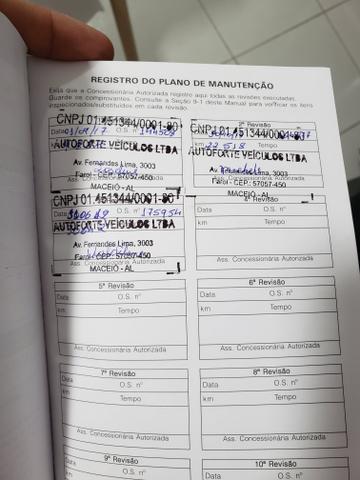 REGISTRO DO PLANO DE MANUTENÇÃO
Exija que a Concessionária Autorizada registre aqui todas as revisões executadas.
Guarde os comprovantes. Consulte a Seção 9-1 deste Manual para verificar os itens
inspecionados/substituídos em cada revisão.
CNPJ 01.451344/0001-90
Data O.S. nº
AUTOFORTE VEÍCULOS LTDA
Av. Fernandes Lima, 3003
Farol - CEP: 57057-450
MACEIÓ - AL
CNPJ 01.451344/0001-90
km 22 518
AUTOFORTE VEÍCULOS LTDA
Av. Fernandes Lima, 3003
Farol - CEP: 57057-450
MACEIÓ - AL
CNPJ 01.451344/0001-90
175954
AUTOFORTE VEÍCULOS LTDA
Av. Fernandes Lima, 3003
Farol - CEP: 57057-450
Ass. Concessionária Autorizada
MACEIÓ - AL
4ª Revisão
Data O.S. nº
km Tempo
Ass. Concessionária Autorizada
5ª Revisão
Data O.S. nº
km Tempo
Ass. Concessionária Autorizada
6ª Revisão
Data O.S. nº
km Tempo
Ass. Concessionária Autorizada
7ª Revisão
Data O.S. nº
km Tempo
Ass. Concessionária Autorizada
8ª Revisão
Data O.S. nº
km Tempo
Ass. Concessionária Autorizada
9ª Revisão
Data O.S. nº
km Tempo
10ª Revisão
Data O.S. nº
km Tempo